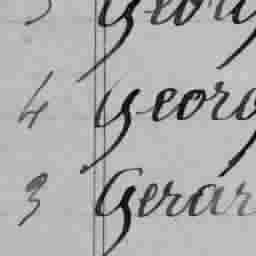 3 Georg
4 Georg
3 Gerar